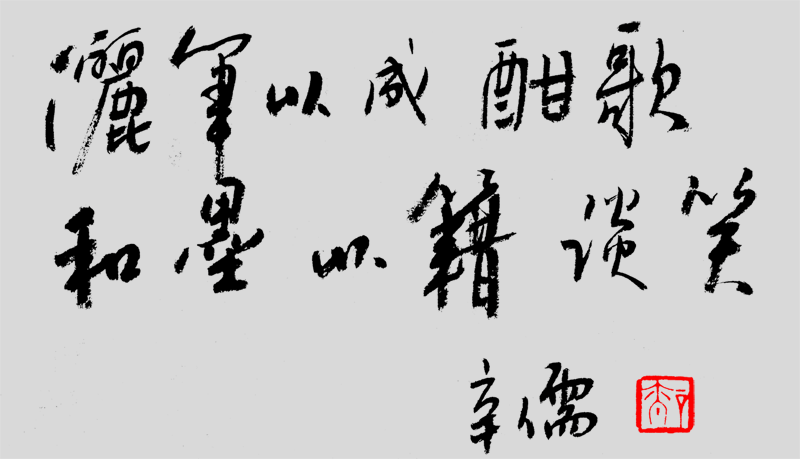 灑筆以成酣歌
和墨以籍談笑
辛儒